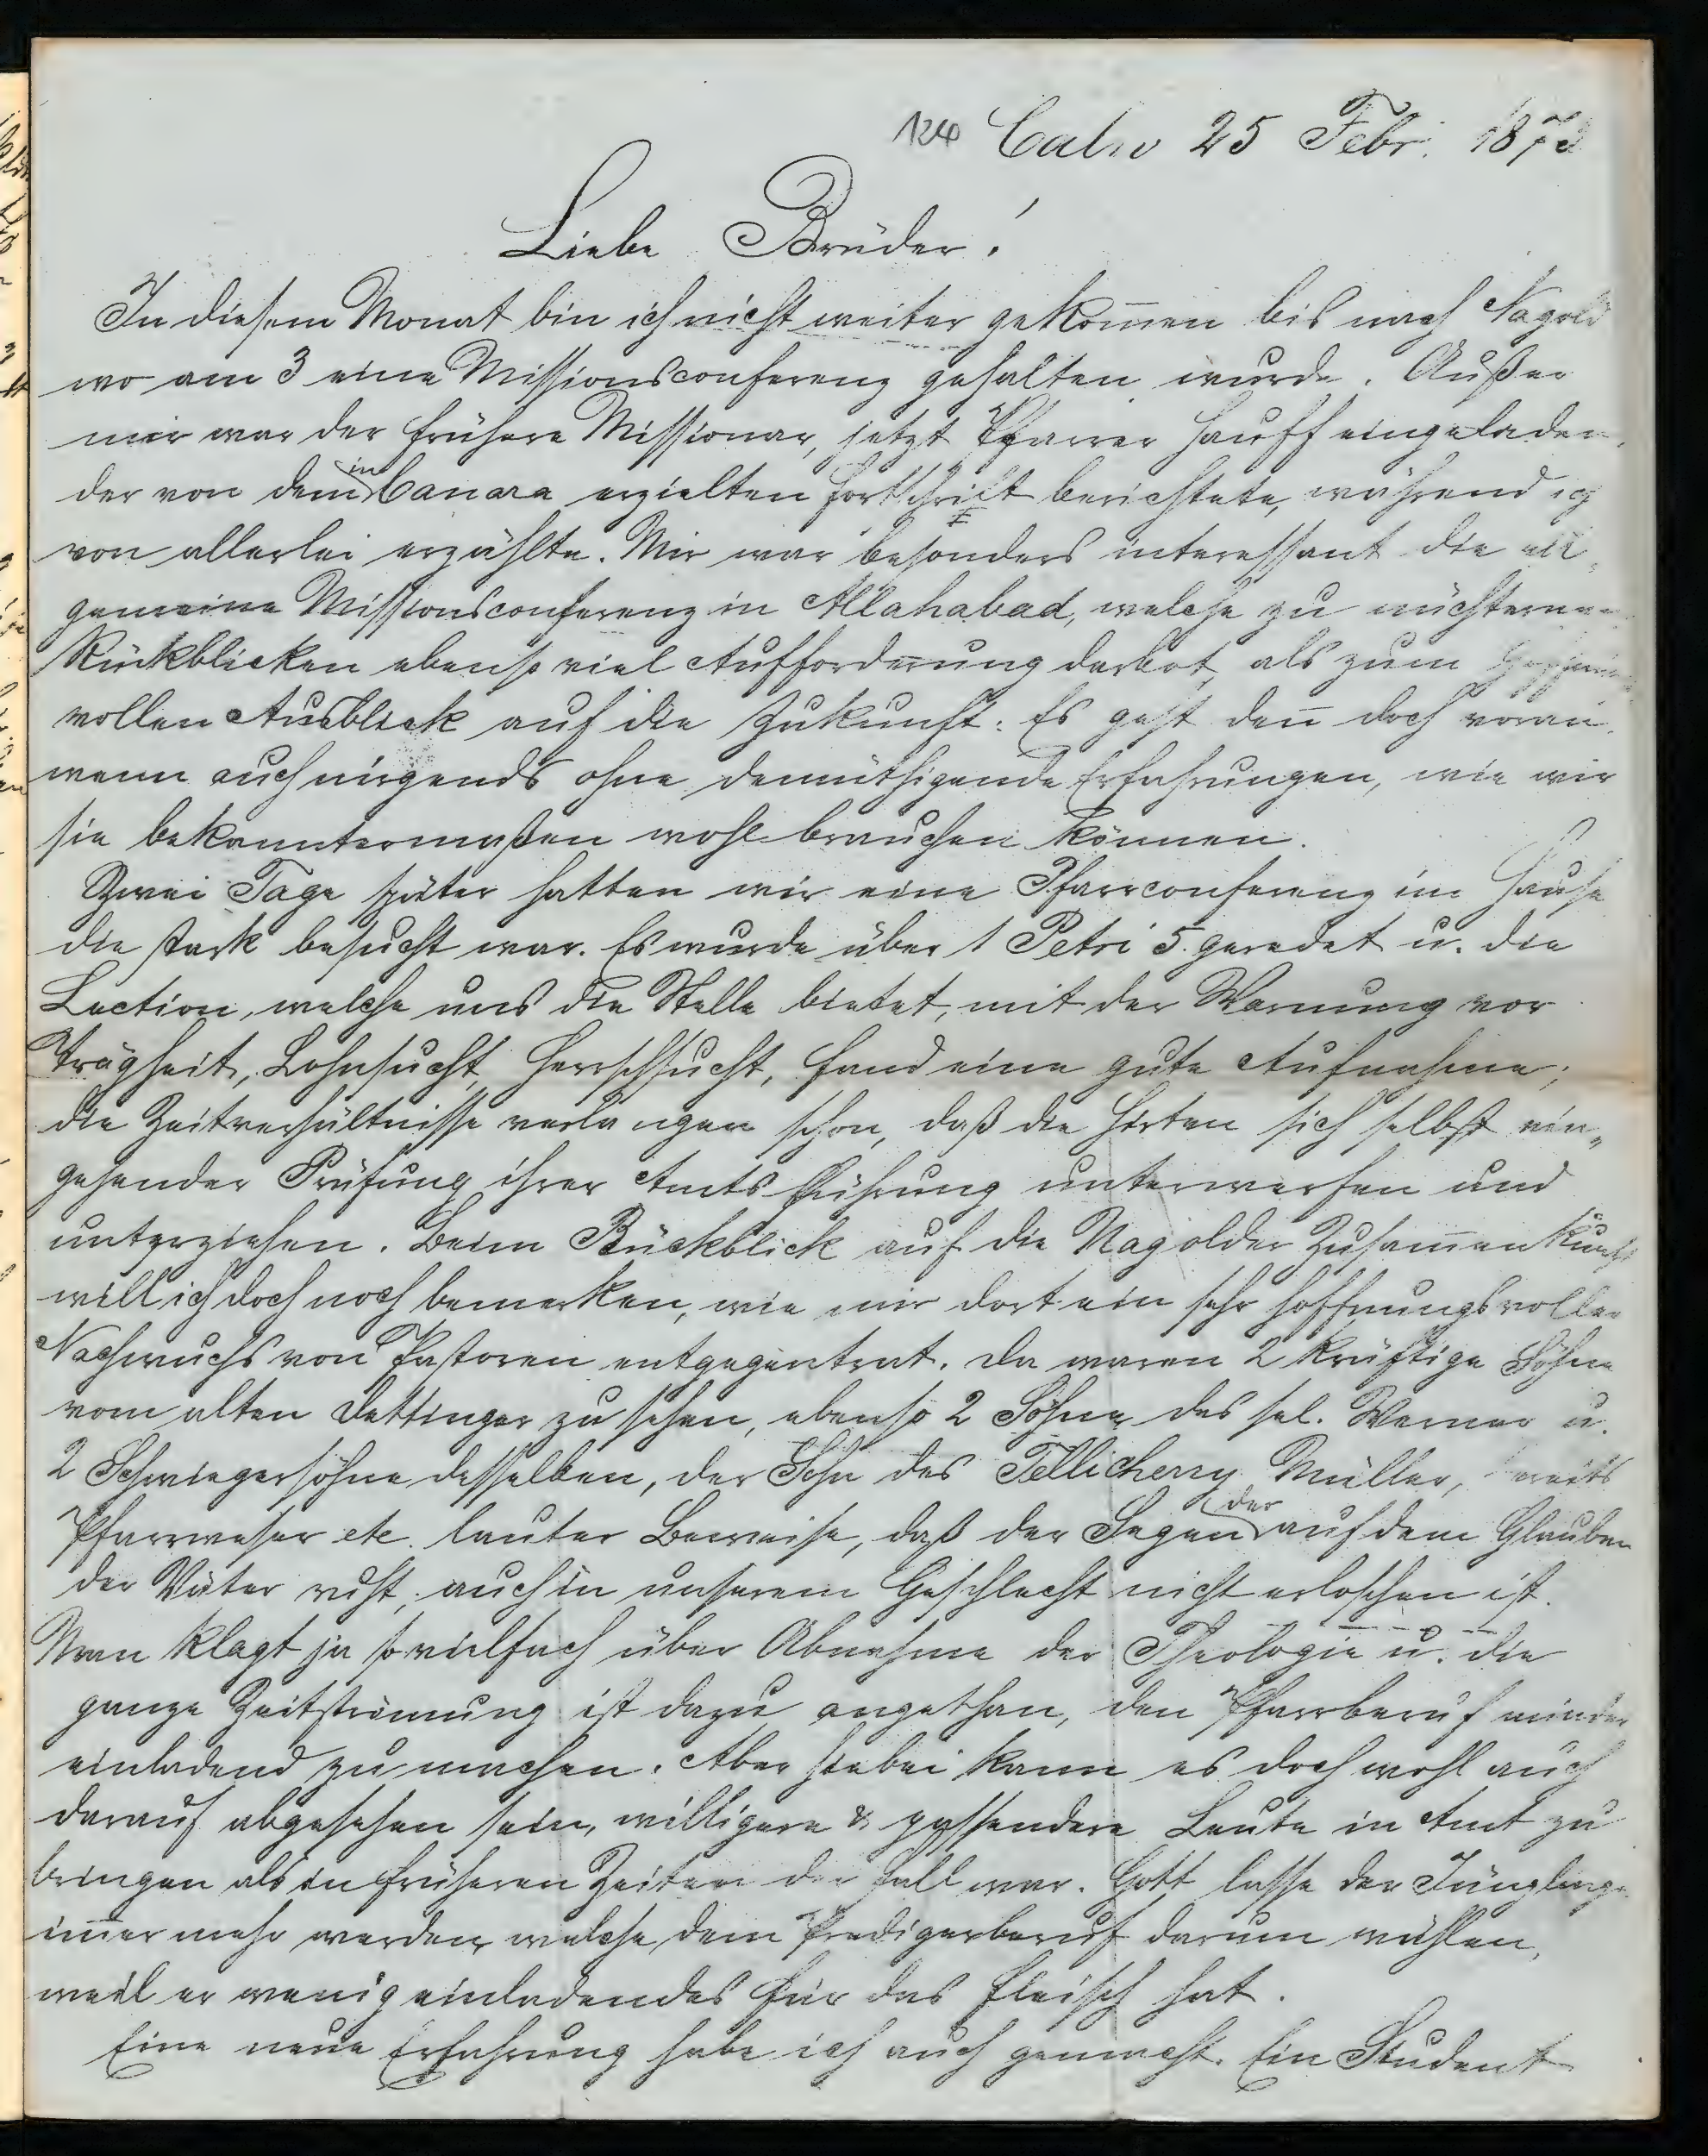 124 Calw 25 Febr. 1873
Liebe Brüder!
In diesem Monat bin ich nicht weiter gekom̅en bis nach Nagold
wo am 3 eine Missionsconferenz gehalten wurde. Außer
mir war der frühere Missionar, jetzt Pfarrer Hauff eingeladen,
der von dem in Canara erzielten Fortschritt berichtete, während ich
von allerlei erzählte. Mir war besonders interessant die all-
gemeine Missionsconferenz in Allahabad, welche zu nüchternen
Rückblicken ebenso viel Aufforderung darbot, als zum
vollen Ausblick auf die Zukunft: Es geht den̅ doch voran,
wenn auch nirgends ohne demüthigende Erfahrungen, wie wir
sie bekanntermaßen wohl brauchen können.
Zwei Tage später hatten wir eine Pfarrconferenz im Hause
die stark besucht war. Es wurde über 1 Petri 5 geredet u. die
Lection, welche uns die Stelle bietet, mit der Warnung vor
Trägheit, Lohnsucht, Herrschsucht, fand eine gute Aufnahme;
die Zeitverhältnisse verlangen schon, daß die Hirten sich selbst ein-
gehender Prüfung ihrer Amtsführung unterwerfen und
unterziehen. Beim Rückblick auf die Nagolder Zusam̅enkunft
will ich doch noch bemerken, wie mir dort ein sehr hoffnungsvoller
Nachwuchs von Pastoren entgegentrat. Da waren 2 kräftige Söhne
vom alten Dettinger zu sehen, ebenso 2 Söhne des sel. Werner u.
2 Schwiegersöhne desselben, der Sohn des Tellicherry Müller, bereits
Pfarrweser etc. lauter Beweise, daß der Segen der auf dem Glauben
der Väter ruht, auch in unserem Geschlecht nicht erloschen ist.
Man klagt ja so vielfach über Abnahme der Theologie u. die
ganze Zeitströmung ist dazu angethan, den Pfarrberuf minder
einladend zu machen. Aber hiebei kann es doch wohl auch
darauf abgesehen sein, willigere & passendere Leute in Amt zu
bringen als in früheren Zeiten der Fall war. Gott lasse der Jünglinge
im̅er mehr werden welche dem Predigerberuf darum wählen,
weil er wenig einladendes für das Fleisch hat.
Eine neue Erfahrung habe ich auch gemacht. Ein Student